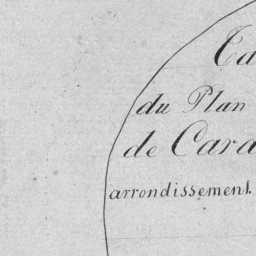 Ta
du Plan
de Cara
arrondissement